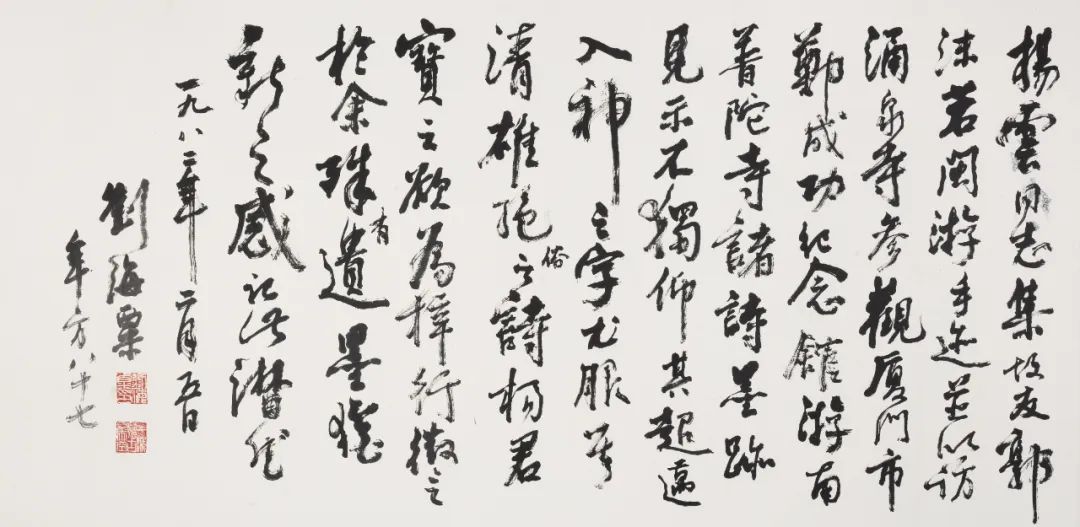 楊雲同志集故友郭
沫若閩游手迹並以訪
涌泉寺参觀厦门市
鄭成功纪念館游南
普陀寺諸詩墨跡
見示不獨仰其超邁
入神之字尤服其
清雄絶俗之詩楊君
寶之欲為梓行徵之
於余殊有遺墨猶
新之感记此潸然
一九八二年二月五日
劉海粟
年方八十七